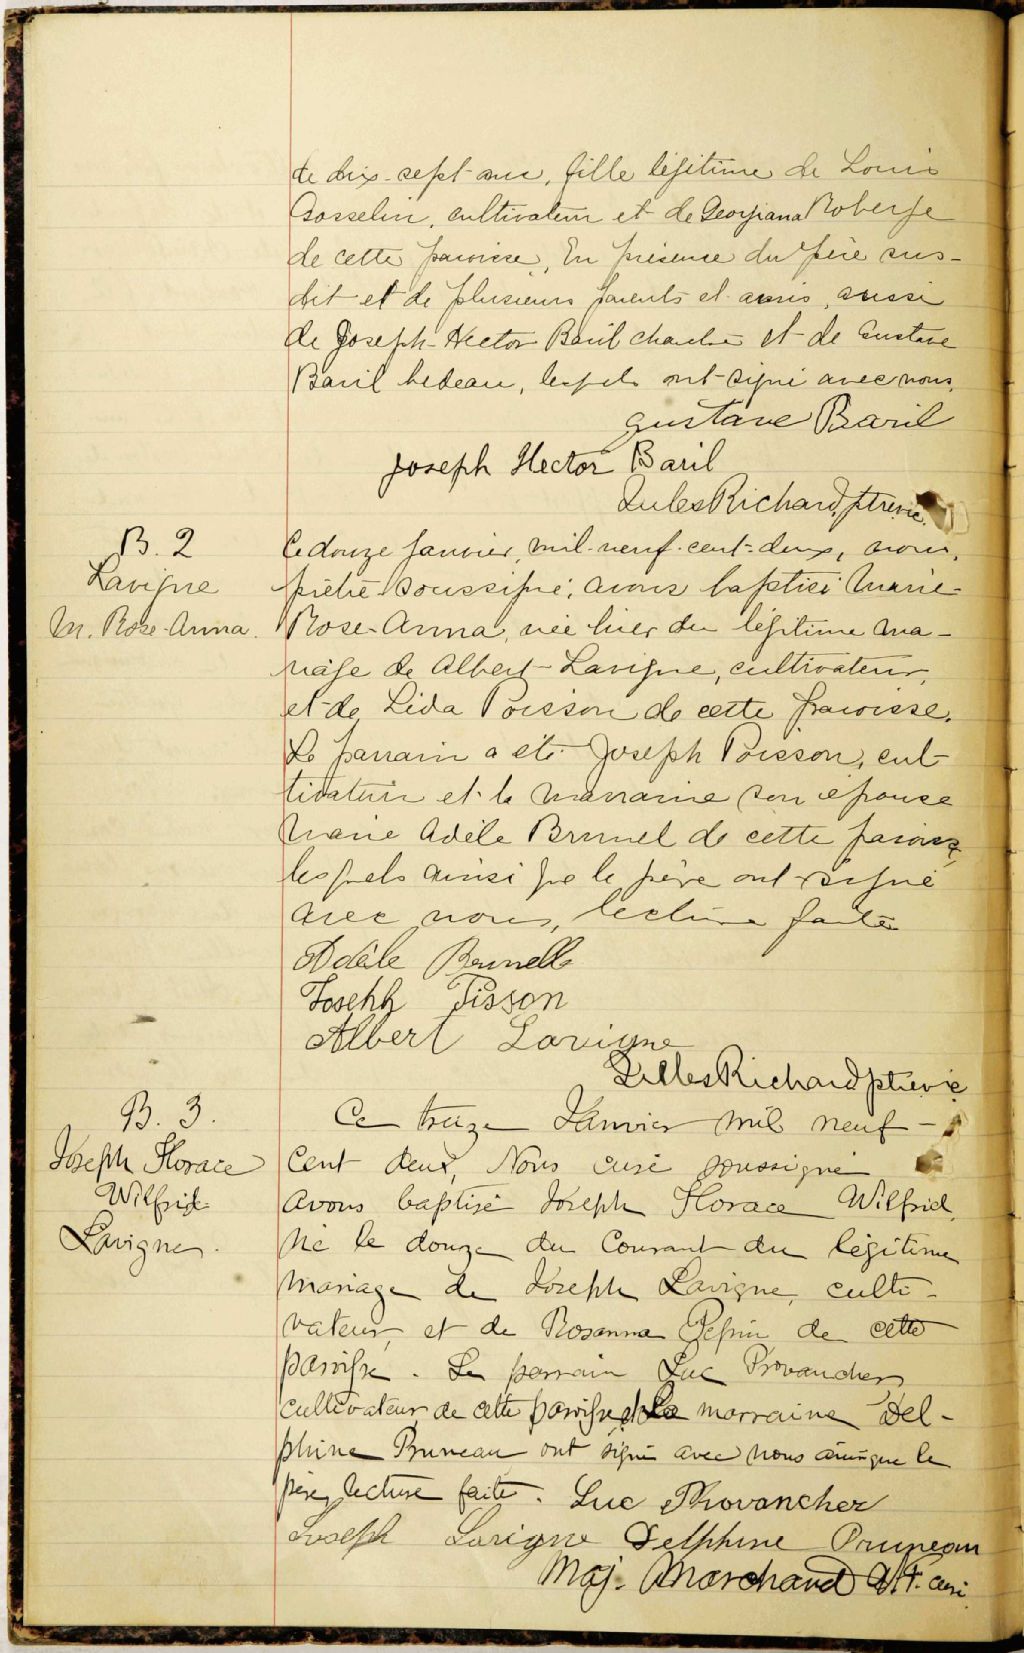 de dix-sept ans, fille légitime de Louis
Gosselin, cultivateur et de Georgiana Roberge
de cette paroisse, En présence du père sus-
dit et de plusieurs parents et amis, aussi
de Joseph-Hector Baril chantre et de Gustave
Baril bedeau, lesquels ont signé avec nous.
Gustave Baril
Joseph Hector Baril
Jules Richard, ptre vic.
B. 2
Lavigne
M. Rose-Anna.
Ce douze janvier, mil-neuf-cent-deux, nous,
prêtre-soussigné, avons baptisé Marie-
Rose-Anna, née hier du légitime ma-
riage de Albert-Lavigne, cultivateur,
et de Léda Poisson de cette paroisse.
Le parrain a été Joseph Poisson, cul-
tivateur et la marraine son épouse
Marie Adèle Brunel de cette paroisse,
lesquels ainsi que le père ont signé
avec nous, lecture faite
Adèle Brunelle
Josehh Pisson
Albert Lavigne
Jules Richard ptre vic
B. 3.
Joseph Horace
Wilfrid
Lavigne.
Ce treize Janvier mil neuf-
Cent deux, Nous curé soussigné
avons baptisé Joseph Horace Wilfrid,
né le douze du Courant du légitime
mariage de Joseph Lavigne, culti-
vateur, et de Rosanna Pepin de cette
paroisse. Le parrain Luc Provancher,
cultivateur de cette paroisse, et La marraine Del-
phine Pruneau ont signé avec nous ainsi que le
père, lecture faite. Luc Provancher
Joseph Lavigne Delphine Pruneau
Maj. Marchand V.F. curé.